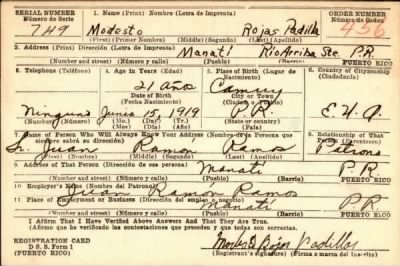 SERIAL NUMBER 1. Name (Print) Nombre (Letra de Imprenta) ORDER NUMBER
Número de Serie Número de Orden
749 Modesto Rojas Padilla 456
(First) (Primer Nombre) (Middle) (Segundo) (Last) (Apellido)
2. Address (Print) Dirección (Letra de Imprenta)
Manatí Río Arriba Ste. P.R.
(Number and street) (Número y calle) (Town) (Pueblo) Barrio PUERTO RICO
3. Telephone (Teléfono) 4. Age in Years (Edad) 5. Place of Birth (Lugar de Nacimiento) 6. Country of Citizenship (Ciudadanía)
21 años Camuy
Date of Birth (Fecha Nacimiento) City or Town (Ciudad o Pueblo)
Ninguno Junio 15, 1919 P.R. E.U.A.
(Number) (Número) (Mo.) (Day) (Yr.) (Country) (País)
(Mes) (Día) (Año)
7. Name of Person Who Will Always Know Your Address (Nombre de la Persona que siempre sabrá su dirección) 8. Relationship of That Person (Parentesco)
Sr. Juan Ramon Ramos
(First) (Primer Nombre) (Middle) (Segundo) (Last) (Apellido)
9. Address of That Person (Dirección de esa persona)
Manatí P.R.
(Number and street) (Número y calle) (Town) (Pueblo) Barrio PUERTO RICO
10. Employer's Name (Nombre del Patrono)
Juan Ramon Ramos
11. Place of Employment or Business (Dirección del empleo o negocio)
Manatí P.R.
(Number and street) (Número y calle) (Town) (Pueblo) Barrio PUERTO RICO
I Affirm That I Have Verified Above Answers And That They Are True.
(Afirmo que he verificado las contestaciones que preceden y que todas son ciertas.)
REGISTRATION CARD
D. S. S. Form 1
(PUERTO RICO) (Registrant's signature) (Firma o marca del Inscrito)
Rojas Padilla